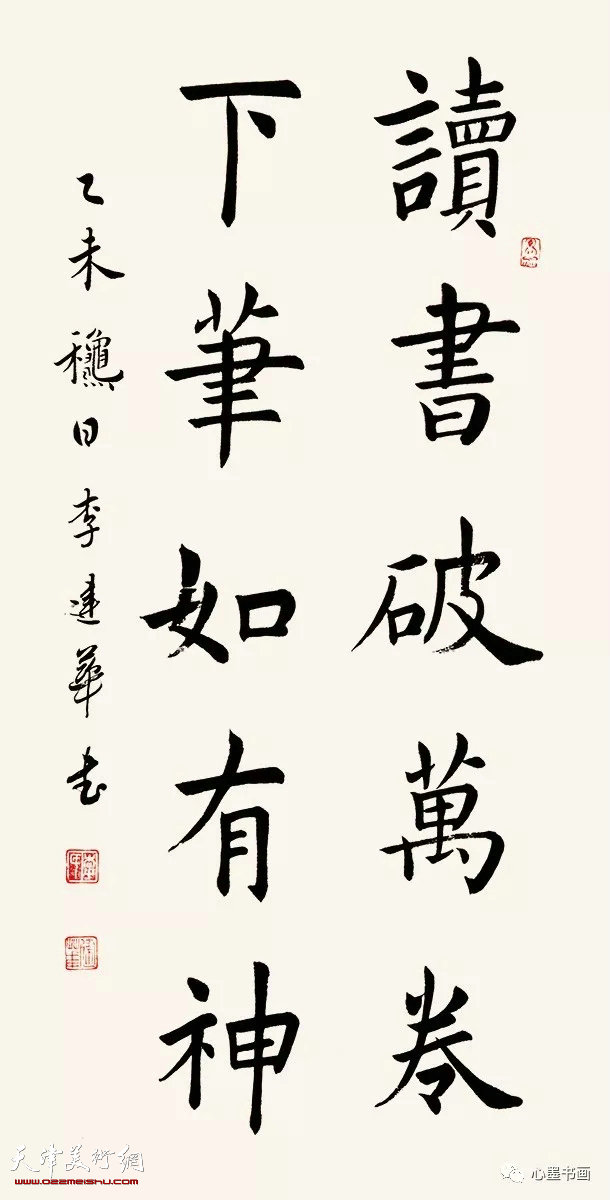 讀書破萬卷
下筆如有神
乙未龝日李建華书
天津美術網
www.022meishu.com
心墨书画